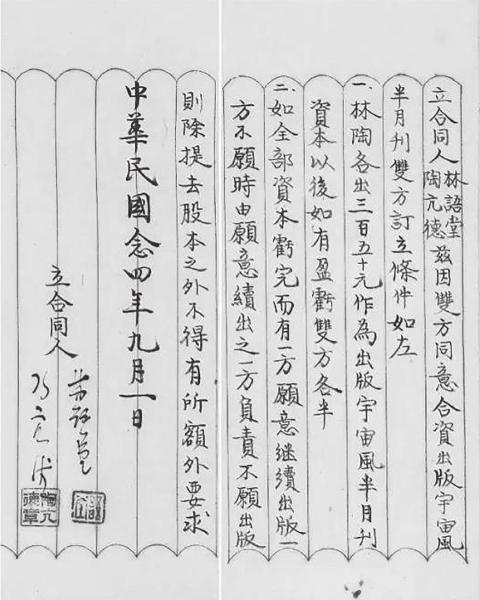 立合同人林語堂陶亢德茲因雙方同意合資出版宇宙風
半月刊雙方訂立條件如左
一.林陶各出三百五十元作為出版宇宙風半月刊
資本以後如有盈虧雙方各半
二.如全部資本虧完而有一方願意継續出版一
方不願時由願意續出之一方負責不願出版
則除提去股本之外不得有所額外要求
中華民國念四年九月一日
立合同人
林語堂
陶亢德
陶亢德章